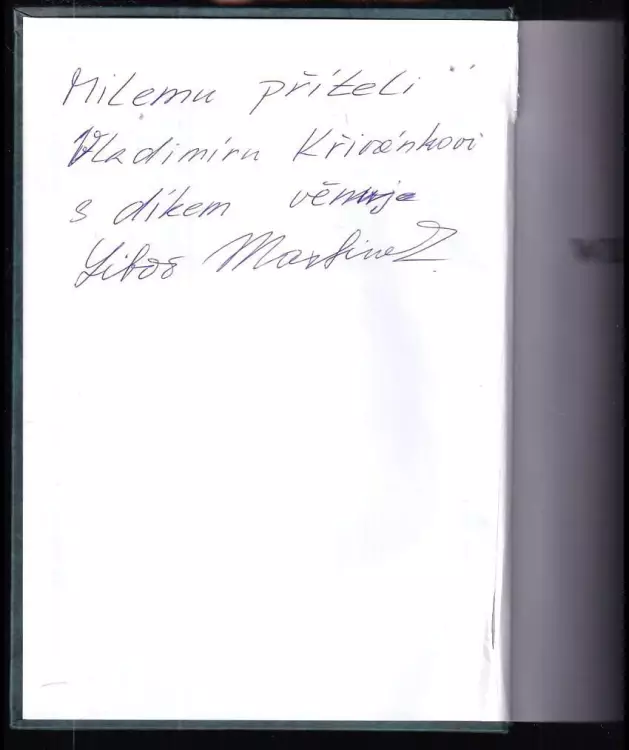 Milému příteli
Vladimíru Křivánkovi
s díkem věnuje
Libor Martinek